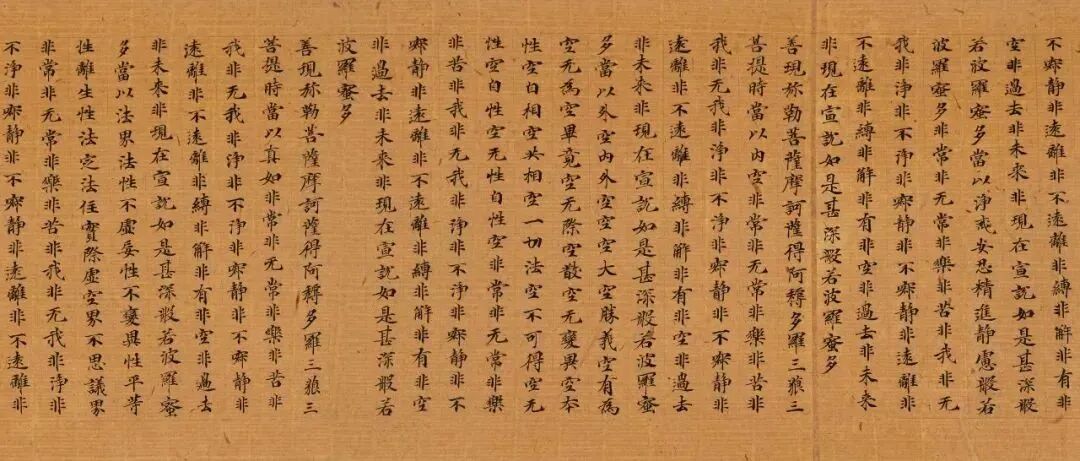 不寂静非遠離非不遠離非縛非解非有非
空非過去非未來非現在宣說如是甚深般
若波羅蜜多當以淨戒安忍精進静慮般若
波羅蜜多非常非无常非樂非苦非我非无
我非淨非不淨非寂静非不寂静非遠離非
不遠離非縛非解非有非空非過去非未來
非現在宣說如是甚深般若波羅蜜多
善現弥勒菩薩摩訶薩得阿耨多羅三藐三
菩提時當以内空非常非无常非樂非苦非
我非无我非淨非不淨非寂静非不寂静非
遠離非不遠離非縛非解非有非空非過去
非未來非現在宣說如是甚深般若波羅蜜
多當以外空内外空空空大空勝義空有為
空无為空畢竟空无際空散空无變異空本
性空自相空共相空一切法空不可得空无
性空自性空无性自性空非常非无常非樂
非苦非我非无我非淨非不淨非寂静非不
寂静非遠離非不遠離非縛非解非有非空
非過去非未來非現在宣說如是甚深般若
波羅蜜多
善現弥勒菩薩摩訶薩得阿耨多羅三藐三
菩提時當以真如非常非无常非樂非苦非
我非无我非淨非不淨非寂静非不寂静非
遠離非不遠離非縛非解非有非空非過去
非未來非現在宣說如是甚深般若波羅蜜
多當以法界法性不虛妄性不變異性平等
性離生性法定法住實際虛空界不思議界
非常非无常非樂非苦非我非无我非淨非
不淨非寂静非不寂静非遠離非不遠離非